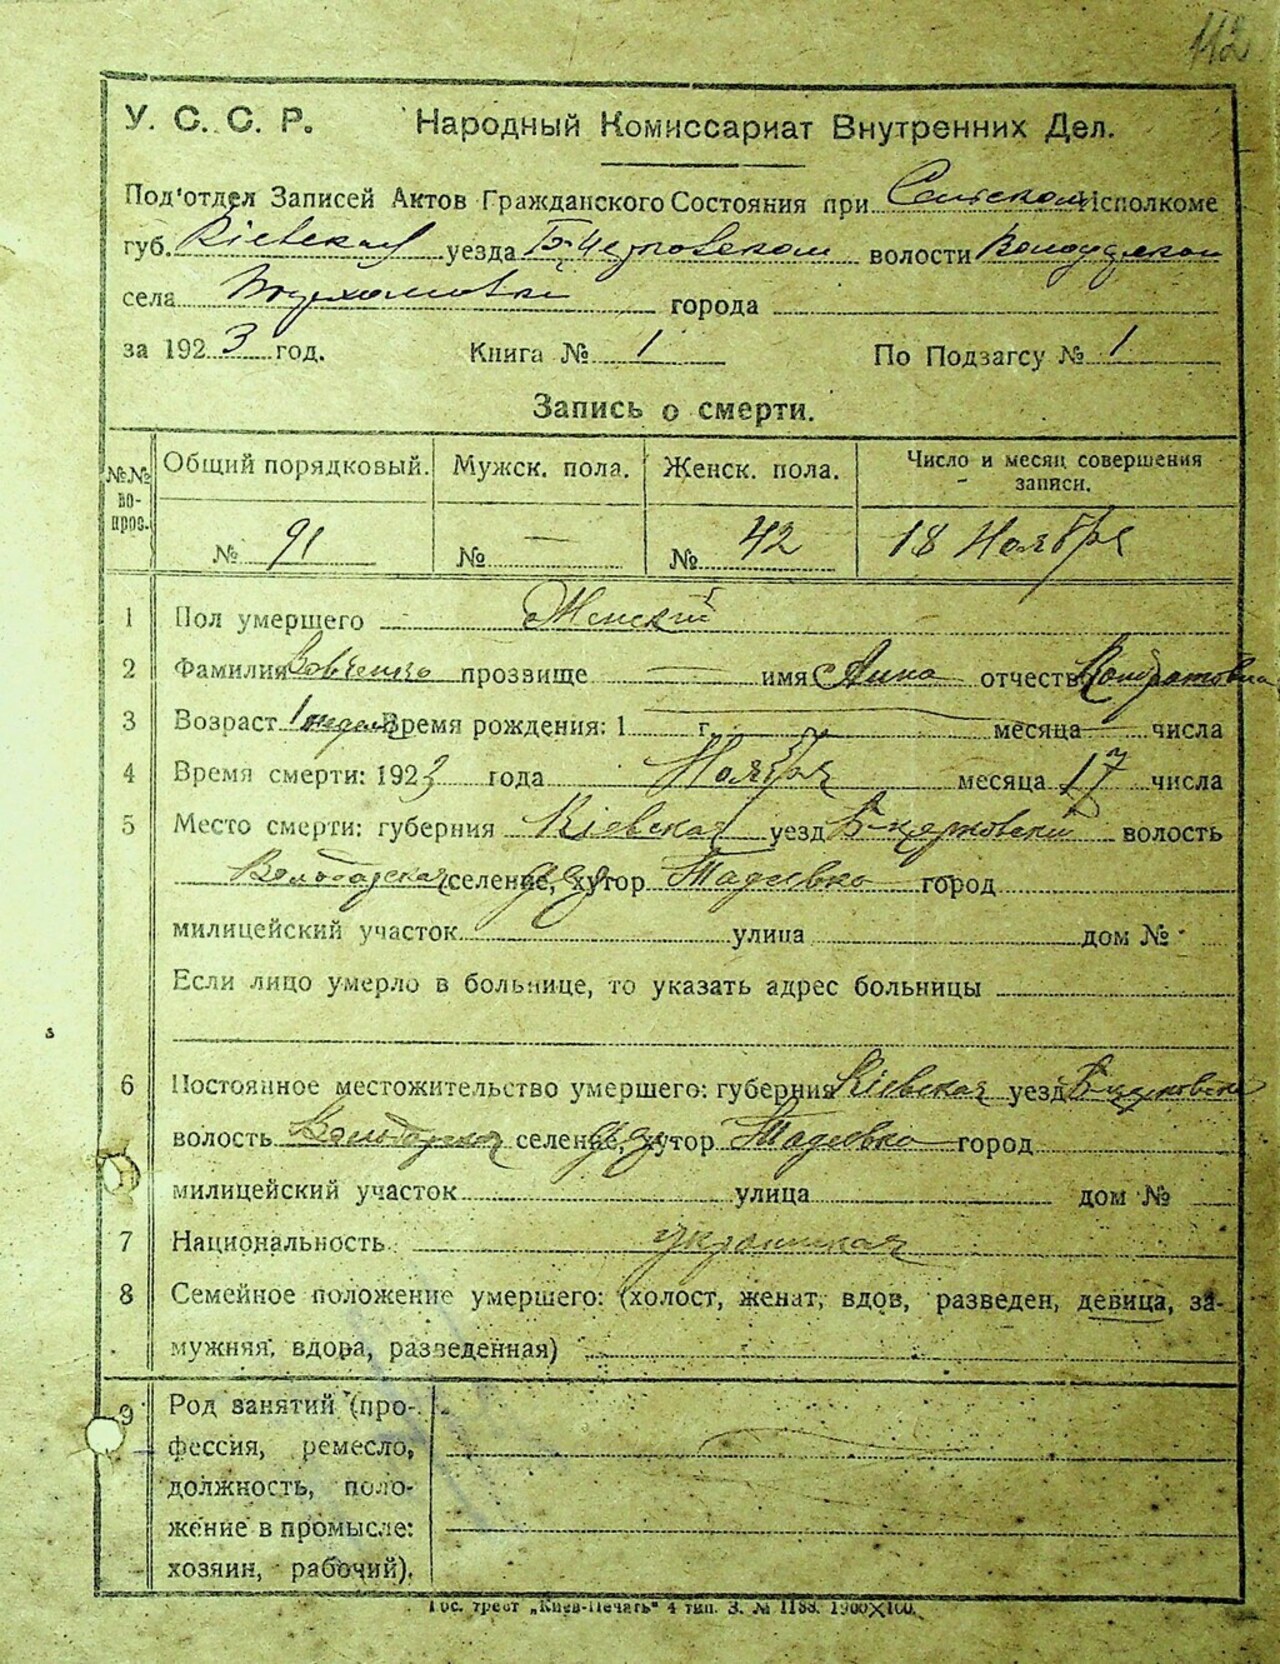 112
У. С. С. Р. Народный Комиссариат Внутренних Дел.
Под'отдел Записей Актов Гражданского Состояния при Сельском Исполкоме
губ. Кіевская уезда Б-Церковском волости
села города
за 1923 год. Книга № 1 По Подзагсу № 1
Запись о смерти.
№№ вопрос. Общий порядковый. Мужск. пола. Женск. пола. Число и месяц совершения записи.
№ 91 № — № 42 18 Ноября
1 Пол умершего Женскій
2 Фамилия Вовченко прозвище — имя Анна отчество Кондратовна
3 Возраст 1 неделя Время рождения: 1 г. месяца числа
4 Время смерти: 1923 года Ноября месяца 17 числа
5 Место смерти: губерния Кіевская уезд Б-церковский волость
Володарская селение, хутор Тадеевка город
милицейский участок улица дом №
Если лицо умерло в больнице, то указать адрес больницы
6 Постоянное местожительство умершего: губерния Кіевская уезд
волость Володарская селение, хутор Тадеевка город
милицейский участок улица дом №
7 Национальность
8 Семейное положение умершего: (холост, женат, вдов, разведен, девица, за-
мужняя, вдова, разведенная)
9 Род занятий (про-
фессия, ремесло,
должность, поло-
жение в промысле:
хозяин, рабочий).
Гос. трест „Киев-Печать" 4 тип. З. № 1188. 1900×100.